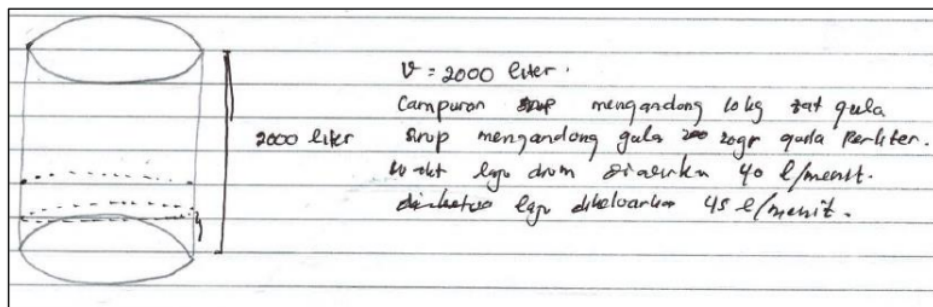 V = 2000 liter.
Campuran mengandong 10 kg zat gula
2000 liter
sirup mengandong gula 20gr gula perliter.
laju drum dialirkan 40 l/menit.
diketua laju dikeluarkan 45 l/menit.